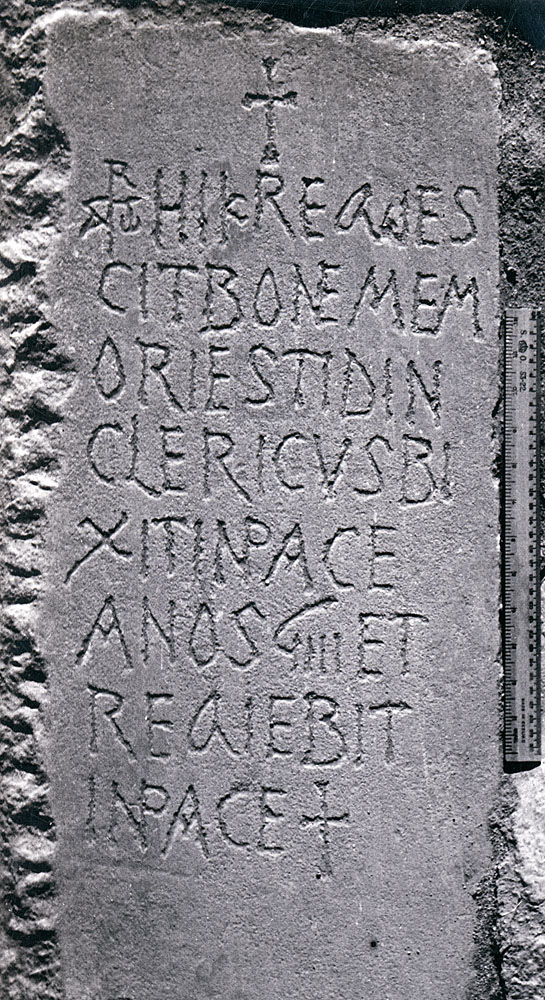 ✝
⳨ HIK REQIES
CIT BONE MEM
ORIES TIDIN
CLERICVS BI
XIT IN PACE
ANOS ϚIIII ET
REQIEBIT
IN PACE ✝